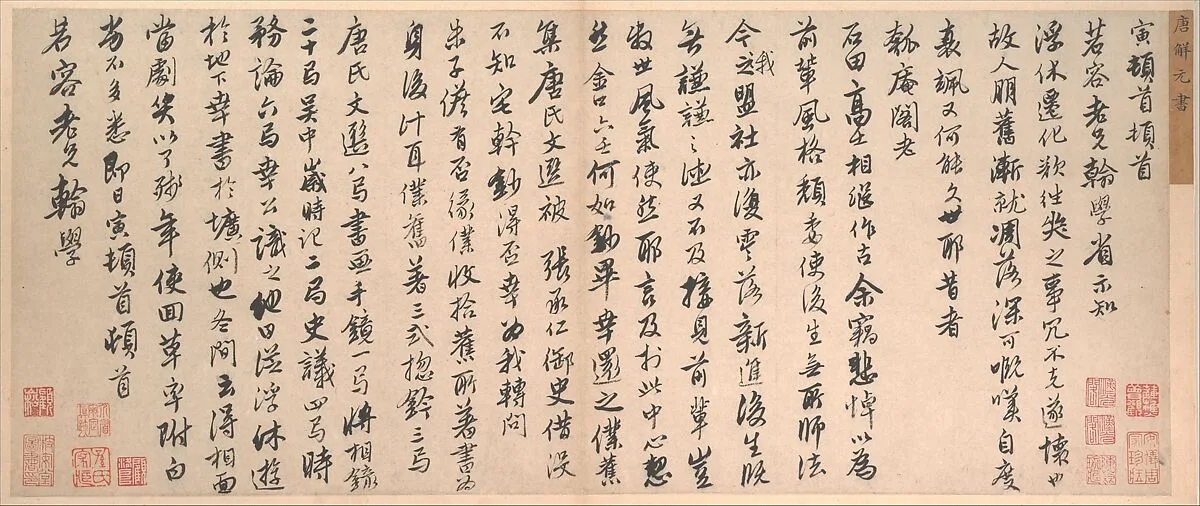 唐解元書
寅頓首頓首
若容老兄翰學省示知
浮休遷化欲往哭之事冗不克遂懷也
故人朋舊漸就凋落深可嘅嘆自度
衰颯又何能久世耶昔者
瓠庵閣老
石田高士相繼作古余竊悲悼以為
前輩風格頹委使後生無所師法
我
今之盟社亦復零落新進後生既
無謙謙之德又不及接見前輩豈
世風氣使然耶言及於此中心
然金口六壬何如鈔畢幸還之僕舊
集唐氏文選被張承仁御史借沒
不知宅幹鈔得否幸為我轉問
朱子儋有否緣僕收拾舊所著書為
身後計耳僕舊著三式總鈐三局
唐氏文選八局書畫手鏡一局將相錄
二十局吳中歲時記二局史議四局時
務論六局幸公識之他日從浮休遊
於地下幸書於壙側也冬間云得相面
當劇笑以了殘年使回草率附白
不多悉即日寅頓首頓首
若容老兄翰學